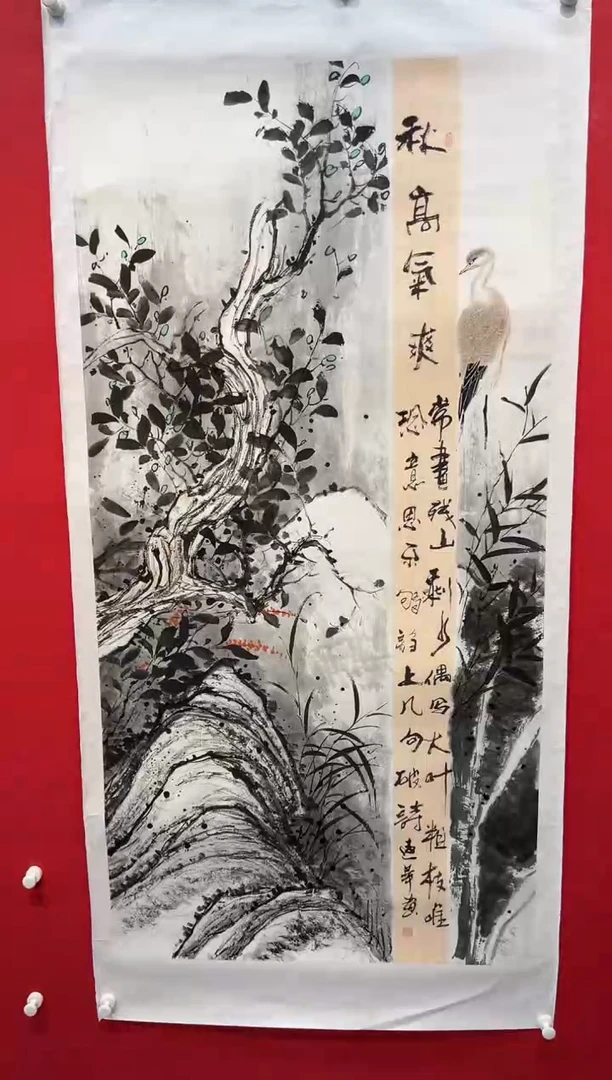 秋高氣爽
常畫残山剩水偶写大叶粗枝唯
恐意思不夠上几句破詩華画